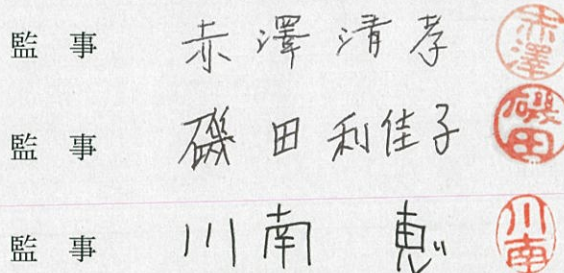 監事 赤澤清孝 赤澤
監事 磯田利佳子 磯田
監事 川南 恵 川南